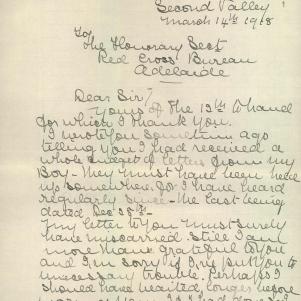 Second Valley
March 14th 1918
To
The Honorary Sect
Red Cross Bureau
Adelaide
Dear Sir/
Yours of the 12th to hand
for which I thank you.
I wrote you sometime ago
telling you I had received a
whole budget of letters from my
Boy - they must have been held
up somewhere for I have heard
regularly since - the last being
dated Dec 28th -
My letter to you must surely
have miscarried. Still I am
more than grateful to you
and I'm sorry if I've put you to
unnecessary trouble. Perhaps I
should have waited longer before